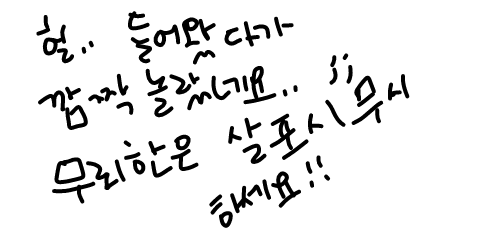 헐.. 들어왔다가
깜짝 놀랐네요.. ;;
무리한은 살포시 무시
하세요!!